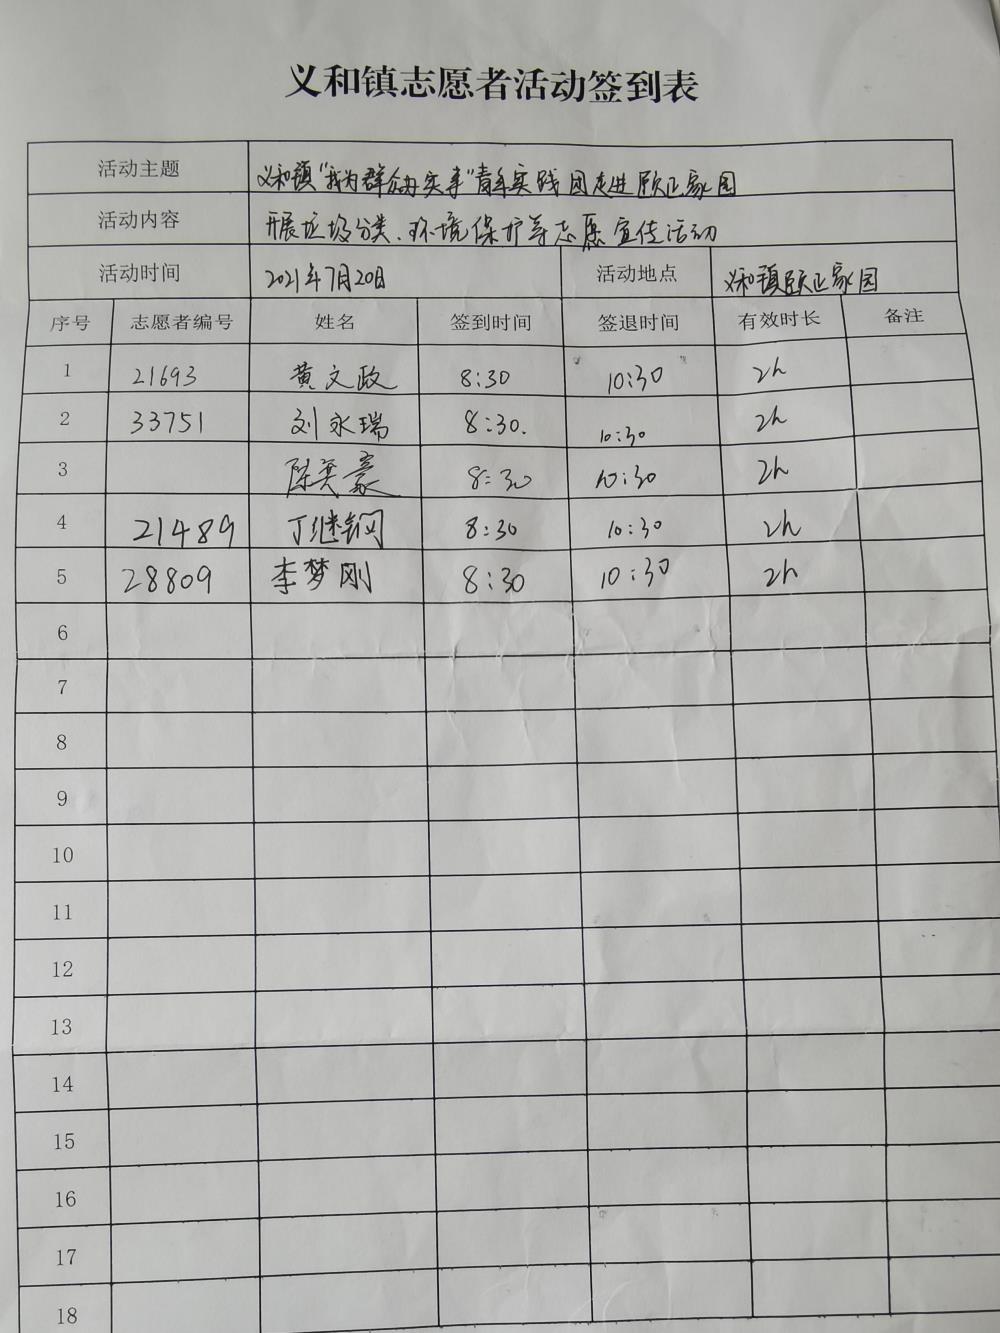 义和镇志愿者活动签到表
活动主题 义和镇“我为群众办实事”青年实践团走进颐正家园
活动内容 开展垃圾分类、环境保护等志愿宣传活动
活动时间 2021年7月20日 活动地点 义和镇颐正家园
序号 志愿者编号 姓名 签到时间 签退时间 有效时长 备注
1 21693 黄文政 8:30 10:30 2h
2 33751 刘永瑞 8:30. 10:30 2h
3 陈英豪 8:30 10:30 2h
4 21489 丁继钢 8:30 10:30 2h
5 28809 李梦刚 8:30 10:30 2h
6
7
8
9
10
11
12
13
14
15
16
17
18